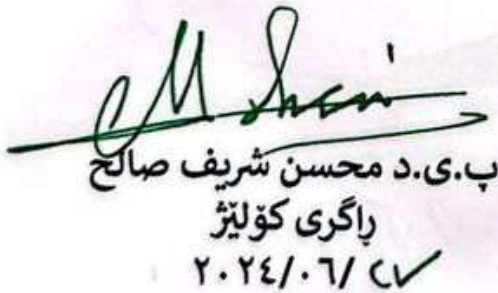 پ.ی.د محسن شریف صالح
ڕاگری کۆلێژ
٢٠٢٤/٠٦/٢٧